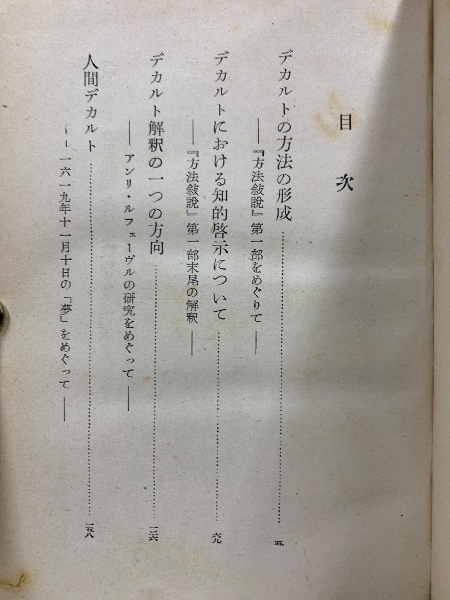 目次
デカルトの方法の形成……五
――『方法敍說』第一部をめぐりて――
デカルトにおける知的啓示について……六九
――『方法敍說』第一部末尾の解釈――
デカルト解釋の一つの方向……一二六
――アンリ・ルフェーヴルの研究をめぐって――
人間デカルト……一五八
――一六一九年十一月十日の「夢」をめぐって――